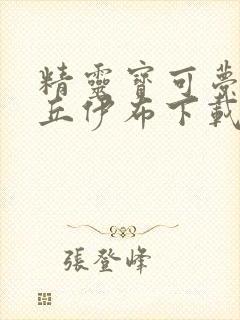 精靈寶可夢
丘伊布下載
張登峰